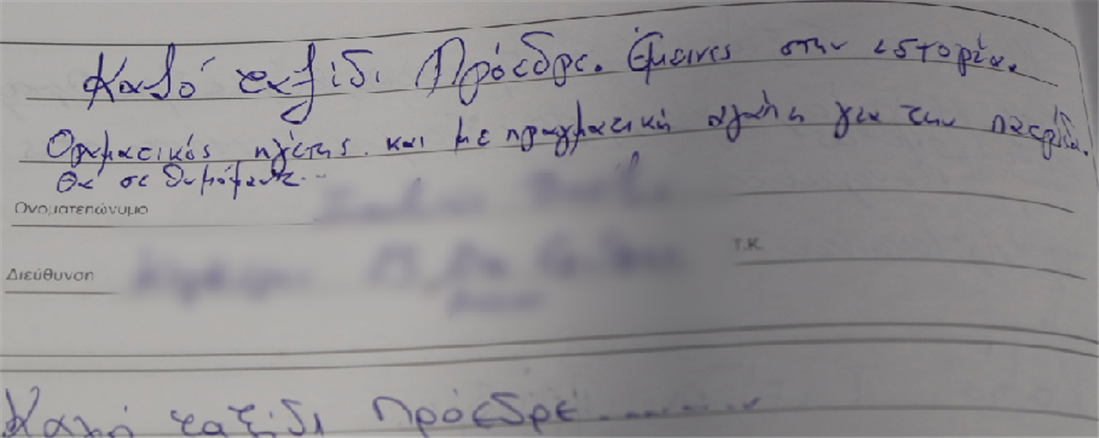 Καλό ταξίδι Πρόεδρε. Έμεινες στην ιστορία.
Οραματικός ηγέτης και με πραγματική αγάπη για την πατρίδα.
Θα σε θυμόμαστε...
Ονοματεπώνυμο
Τ.Κ.
Διεύθυνση
Καλό ταξίδι Πρόεδρε..........